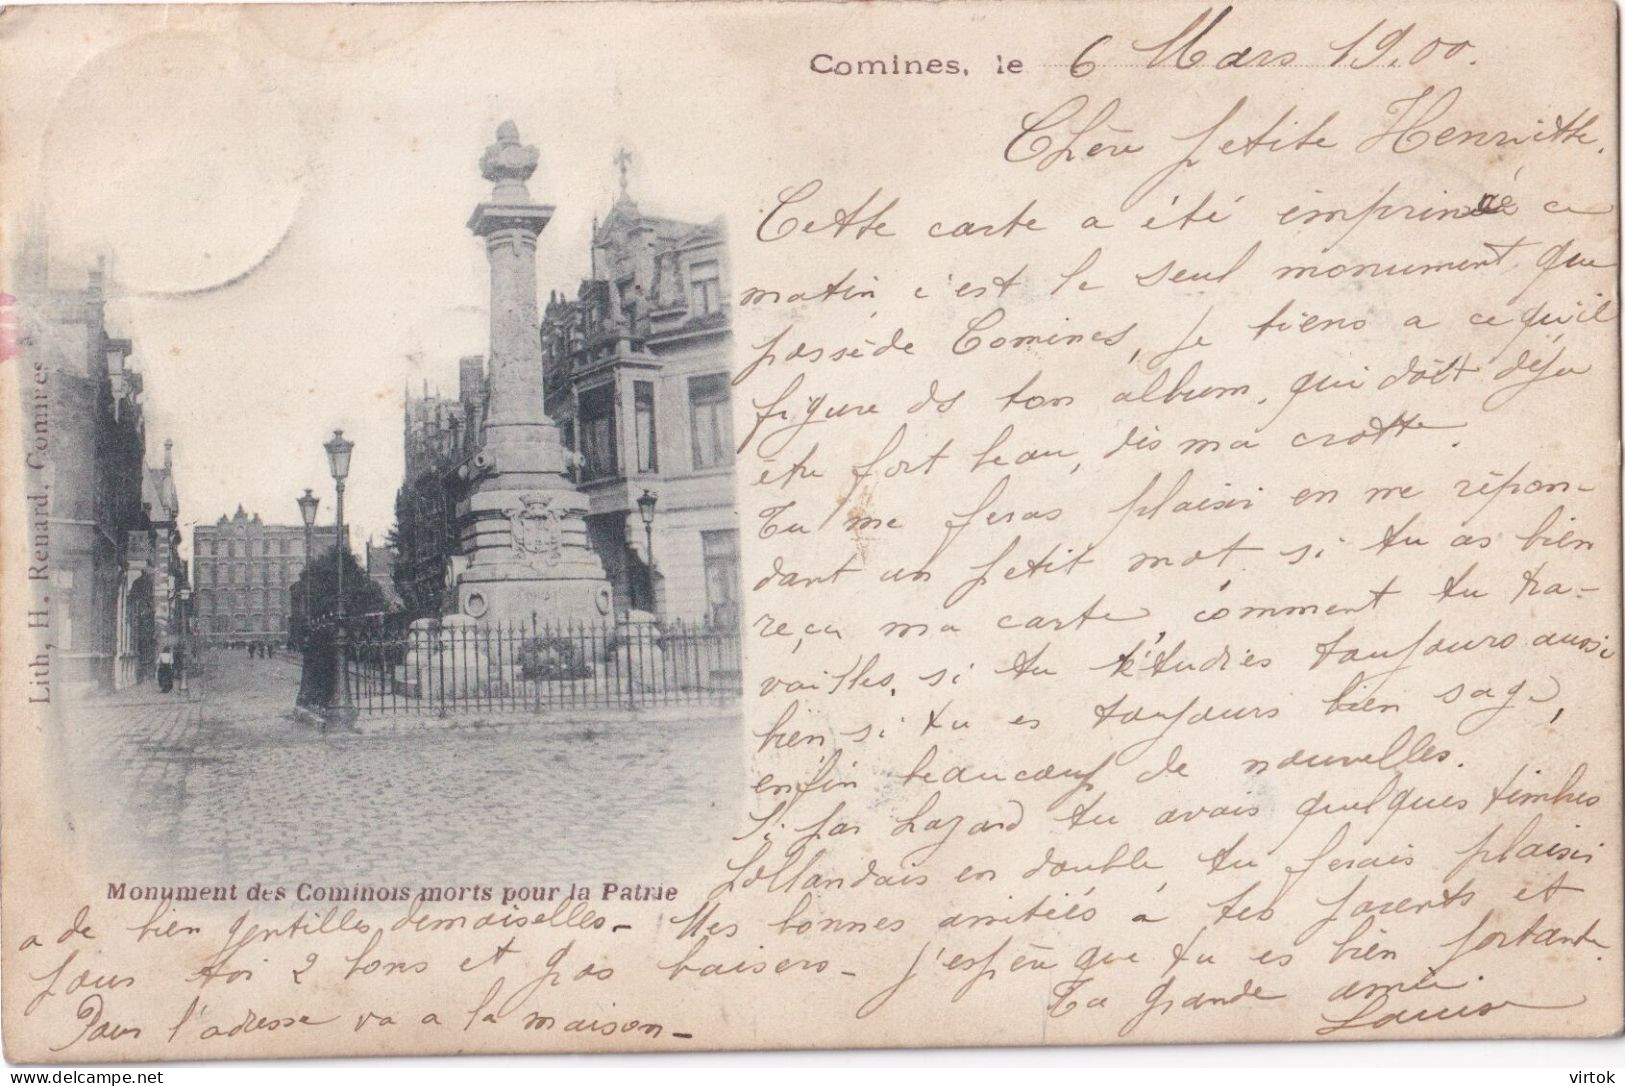 Comines, le 6 Mars 19.00.
Chère petite Henriette.
Cette carte a été imprimée ce
matin, c'est le seul monument que
possède Comines, je tiens a ce qu'il
figure ds ton album, qui doit déja
être fort beau, dis ma crotte.
Tu me feras plaisir en me répon-
dant un petit mot si tu as bien
reçu ma carte, comment tu tra-
vailles, si tu t'étudies toujours aussi
bien si tu es toujours bien sage,
enfin beaucoup de nouvelles.
Si par hazard tu avais quelques timbres
hollandais en double, tu ferais plaisir
a de bien gentilles demoiselles_ Mes bonnes amitiés à tes parents et
pour toi 2 bons et gros baisers_ j'espère que tu es bien portante.
Ta grande amie
Louise
Pour l'adresse va a la maison_
Monument des Cominois morts pour la Patrie
Lith, H. Renard. Comines
virtok